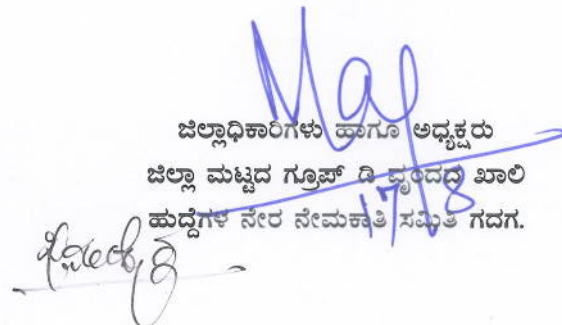 ಜಿಲ್ಲಾಧಿಕಾರಿಗಳು ಹಾಗೂ ಅಧ್ಯಕ್ಷರು
ಜಿಲ್ಲಾ ಮಟ್ಟದ ಗ್ರೂಪ್ ಡಿ ವೃಂದದ ಖಾಲಿ
ಹುದ್ದೆಗಳ ನೇರ ನೇಮಕಾತಿ ಸಮಿತಿ ಗದಗ.
17/8